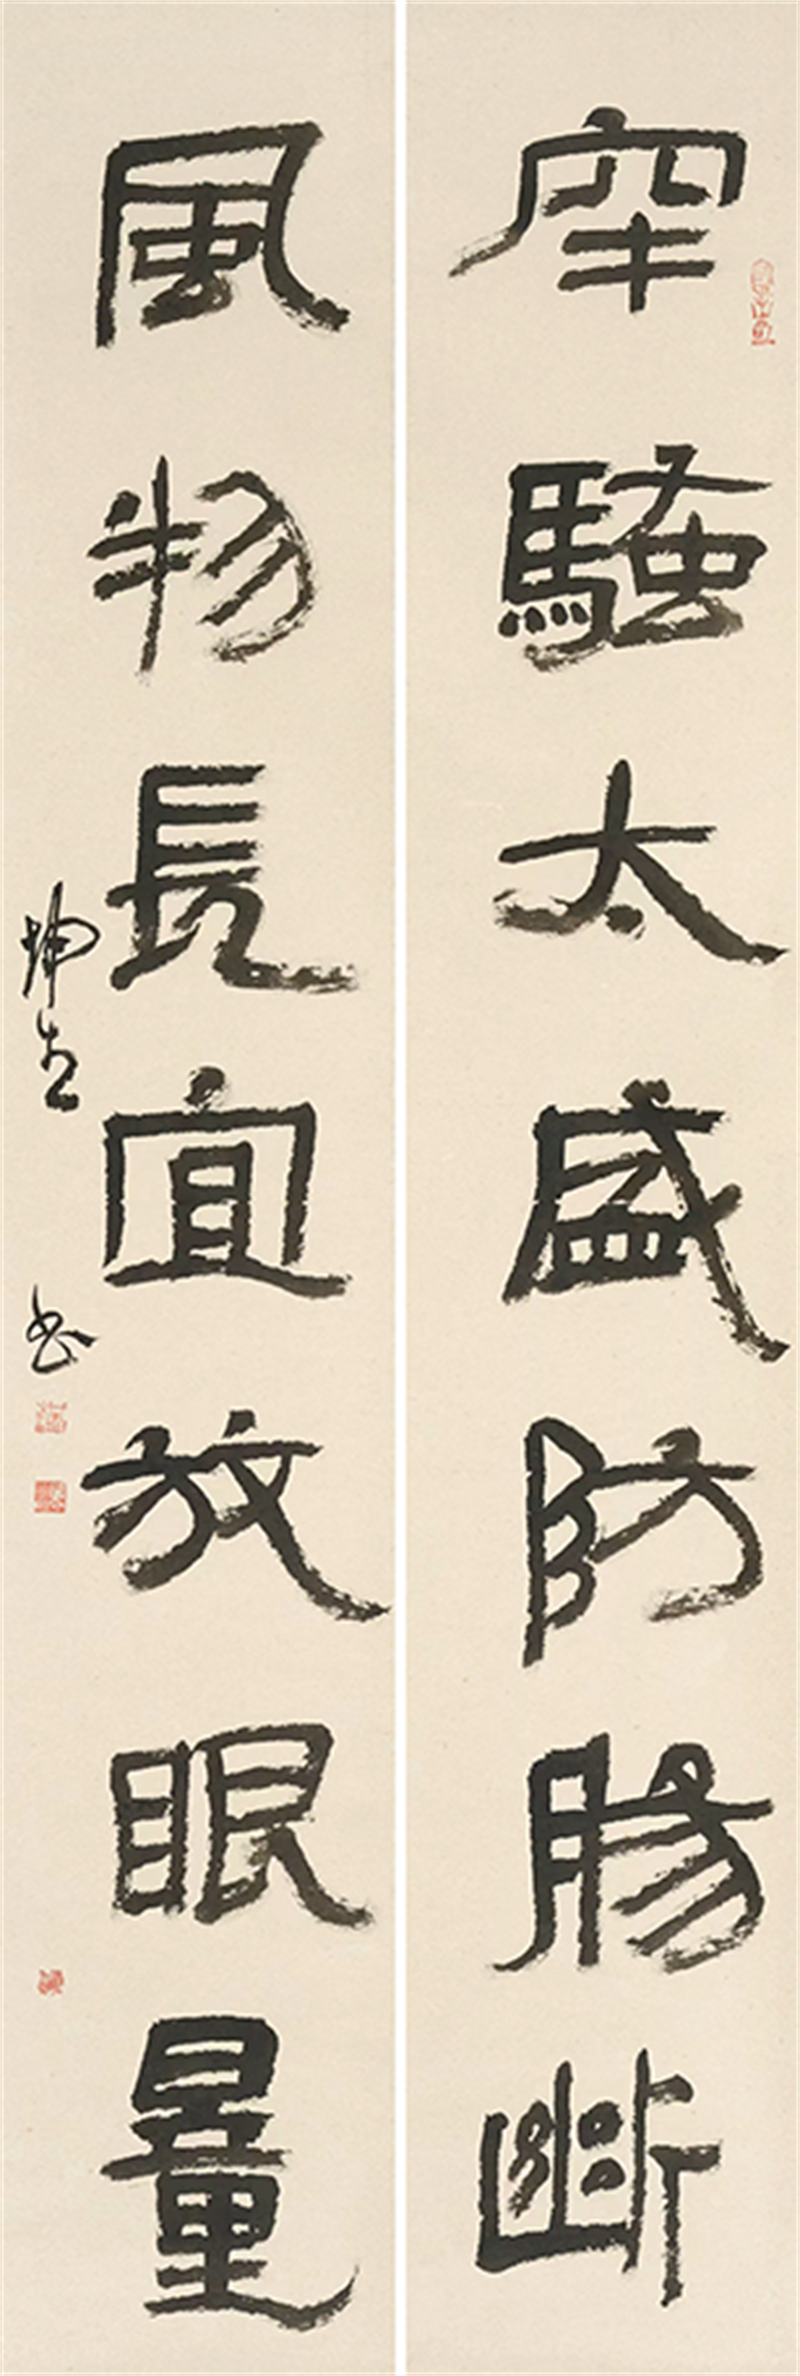 牢騷太盛防腸斷
風物長宜放眼量
坤生書